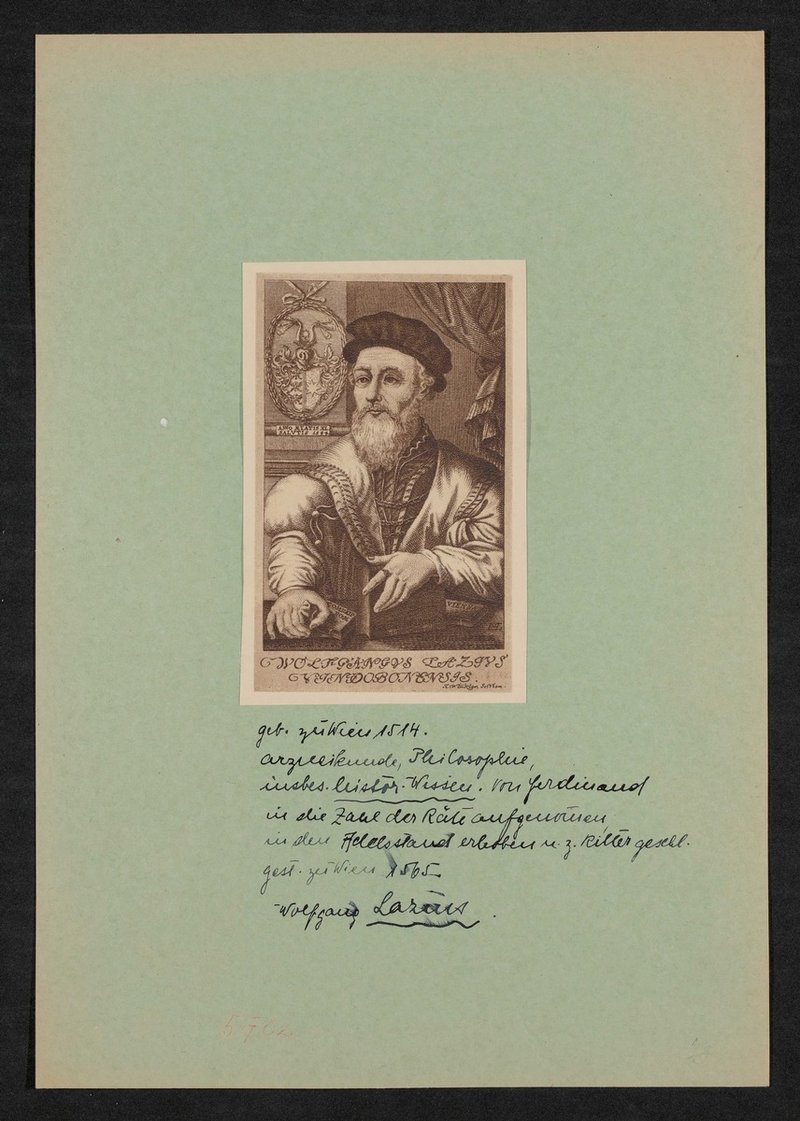 WOLFGANGVS LAZIVS
VIENNDOBONENSIS.
geb. zu Wien 1514.
Arzneikunde, Philosophie,
insbes. histor. Wissen. Von Ferdinand
in die Zahl der Räte aufgenom̄en,
in den Adelsstand erhoben u. z. Ritter geschl.
gest. zu Wien 1565
Wolfgang Lazius.